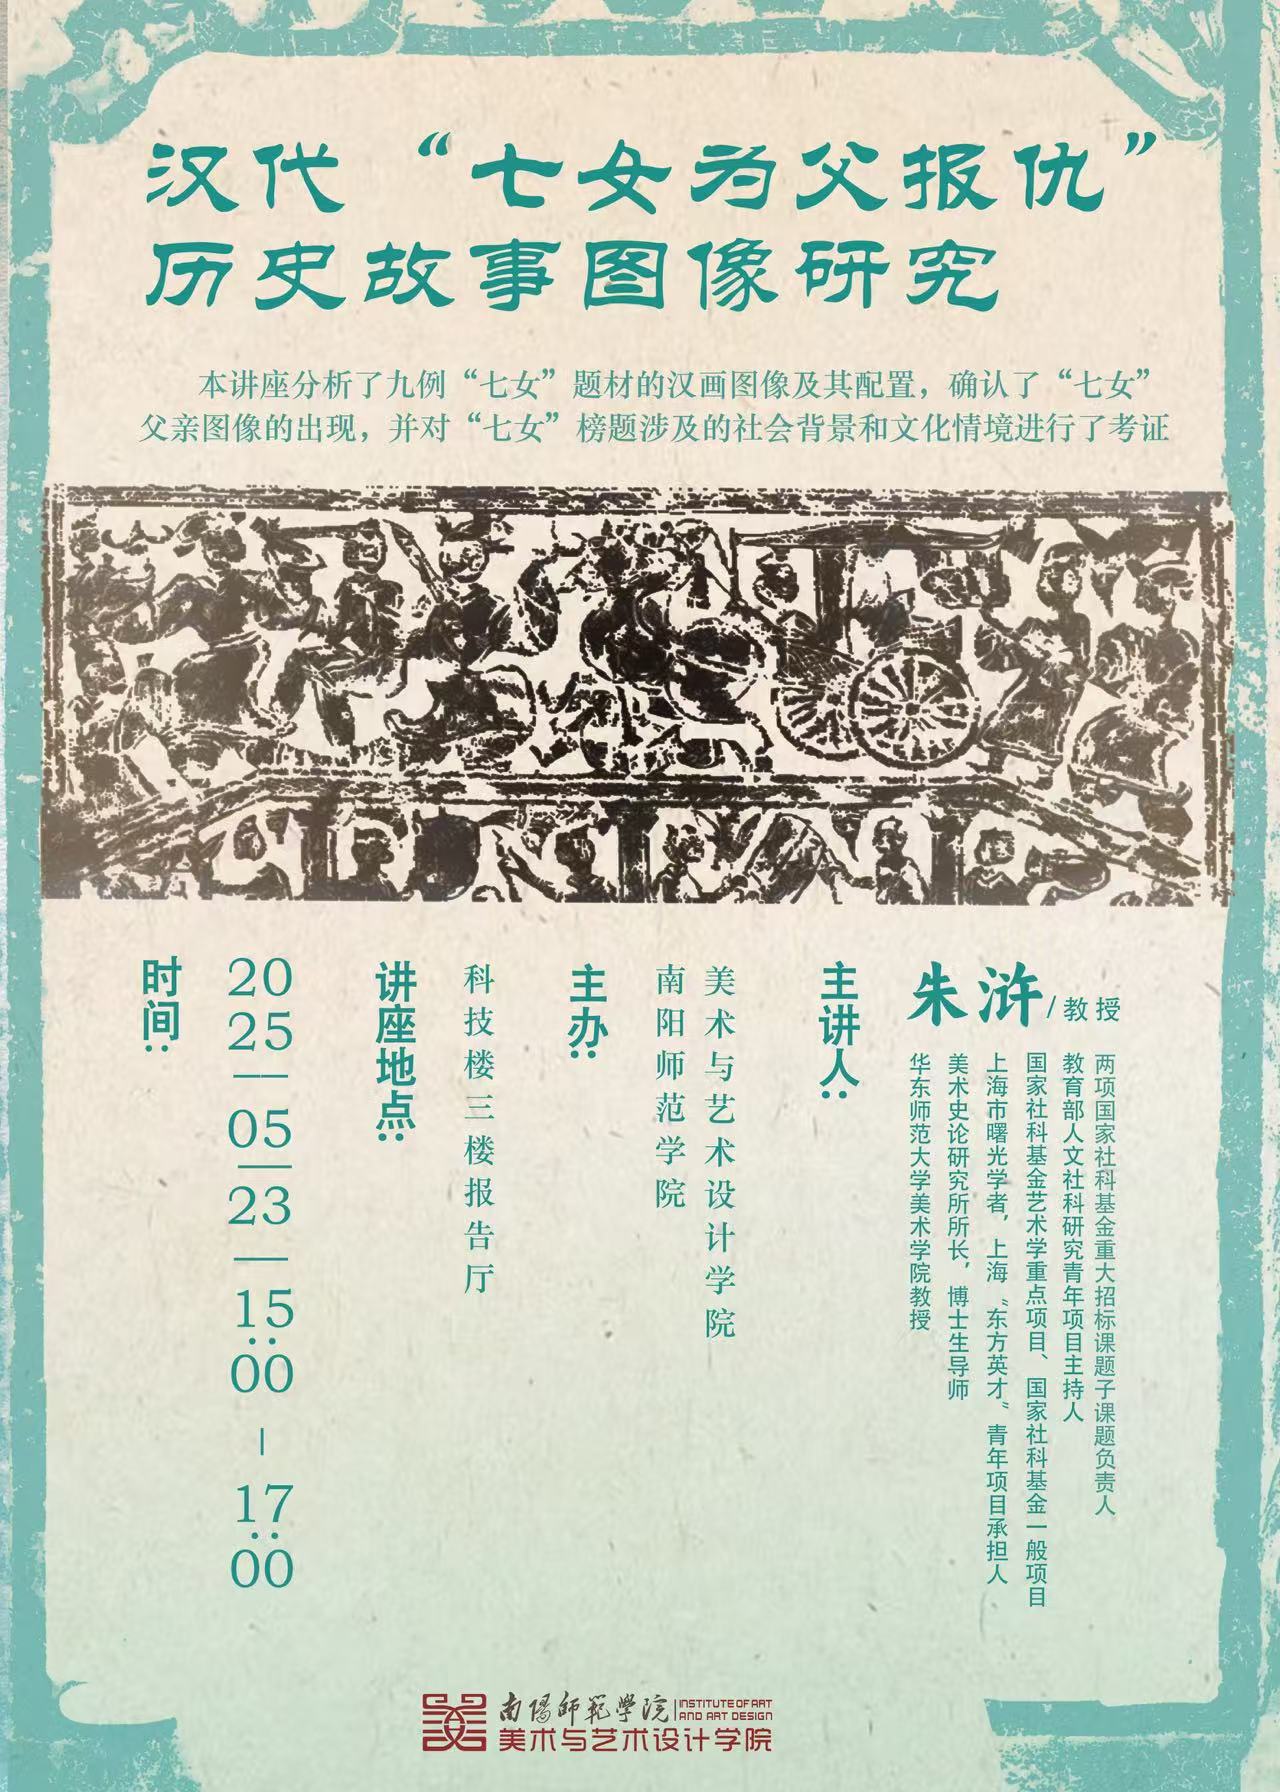 汉代“七女为父报仇”
历史故事图像研究
本讲座分析了九例“七女”题材的汉画图像及其配置，确认了“七女”
父亲图像的出现，并对“七女”榜题涉及的社会背景和文化情境进行了考证
时间：
2025—05—23—15:00－17:00
讲座地点：
科技楼三楼报告厅
主办：
南阳师范学院
美术与艺术设计学院
主讲人：
朱浒/教授
华东师范大学美术学院教授
美术史论研究所所长，博士生导师
上海市曙光学者，上海“东方英才”青年项目承担人
国家社科基金艺术学重点项目、国家社科基金一般项目
教育部人文社科研究青年项目主持人
两项国家社科基金重大招标课题子课题负责人
南陽師範學院
INSTITUTE OF ART
AND ART DESIGN
美术与艺术设计学院